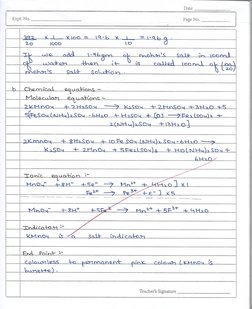 Date
Expt. No.
Page No.
392/20 × 1/1000 × 100 = 19.6 × 1/10 = 1.96 g.
If we add 1.96gm of mohr's salt in 100ml
of water then it is called 100ml of (M/20)
mohr's salt solution.
b Chemical equations :-
Molecular equations -
2KMnO4 + 3H2SO4 → K2SO4 + 2MnSO4 + 3H2O + 5
5[FeSO4(NH4)2SO4.6H2O + H2SO4 + [O] → Fe2(SO4)3 +
2(NH4)2SO4 + 13H2O]
2KMnO4 + 8H2SO4 + 10FeSO4(NH4)2SO4.6H2O →
K2SO4 + 2MnSO4 + 5Fe2(SO4)3 + 10(NH4)2SO4 +
6H2O
Ionic equation :-
MnO4⁻ + 8H⁺ + 5e⁻ → Mn²⁺ + 4H2O] X1
Fe²⁺ → Fe³⁺ + e⁻] X5
MnO4⁻ + 8H⁺ + 5Fe²⁺ → Mn²⁺ + 5F³⁺ + 4H2O
Indicator :-
KMnO4 is a self indicator
End Point :-
Colourless to permanent pink colour (KMnO4 is
burette).
Teacher's Signature